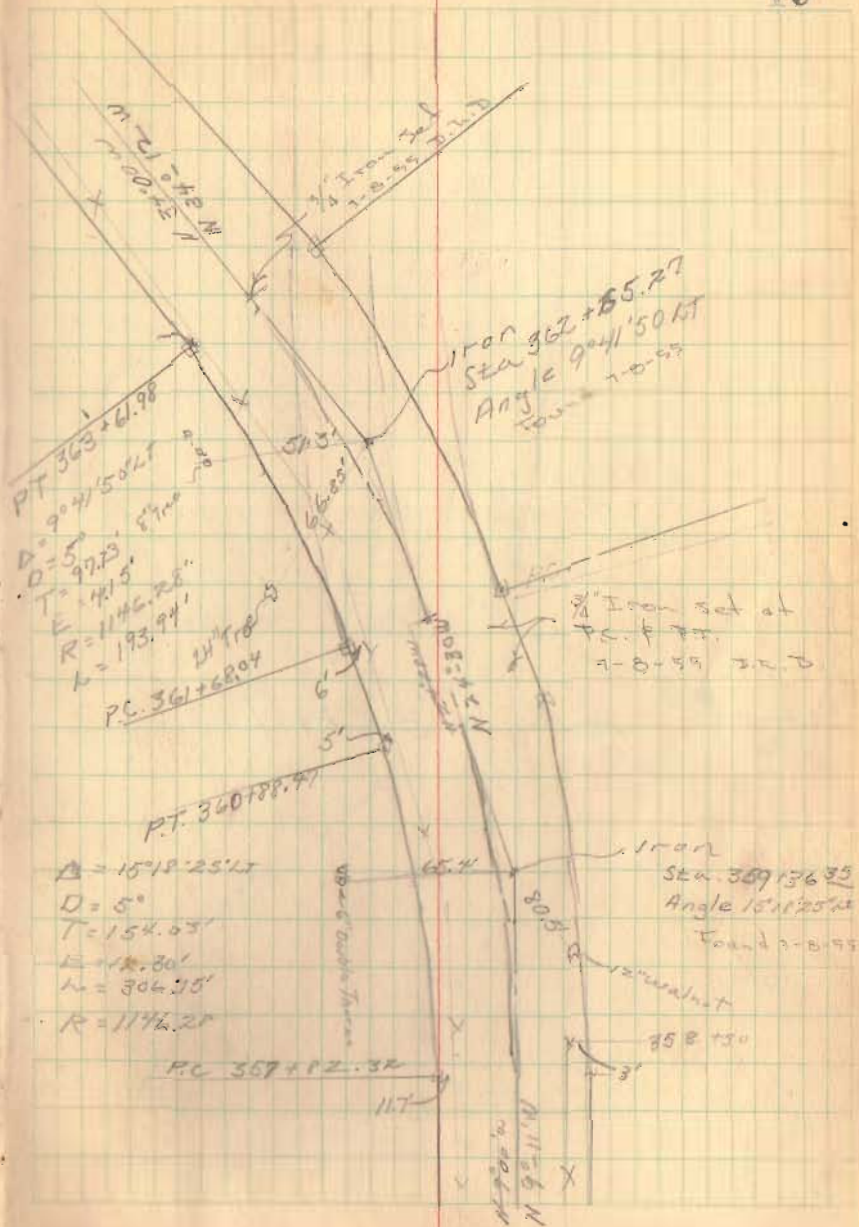 N 34°-12-W
N 34°00W
3/4" Iron set
Iron
Sta 362+65.27
Angle 9°41'50 LT
Found 7-8-55
PT 363+61.98
Δ = 9°41'50" LT
D = 5°
T = 97.23'
E = 4.15'
R = 1146.28'
L = 193.94'
51.3'
66.85'
24" Tree
P.C. 361+68.04
6'
3/4" Iron set at
P.C. & P.T.
N 24-30W
5'
P.T. 360+88.47
Δ = 15°18'25" LT
D = 5°
T = 154.03'
E = 12.30'
L = 306.15'
R = 1146.28
65.4'
80.5'
Iron
Sta. 359+36.35
Angle 15°18'25" LT
Found 7-8-55
12" walnut
358+30
3'
P.C 357+82.32
11.7
N 9-11, W
N 9°00, W